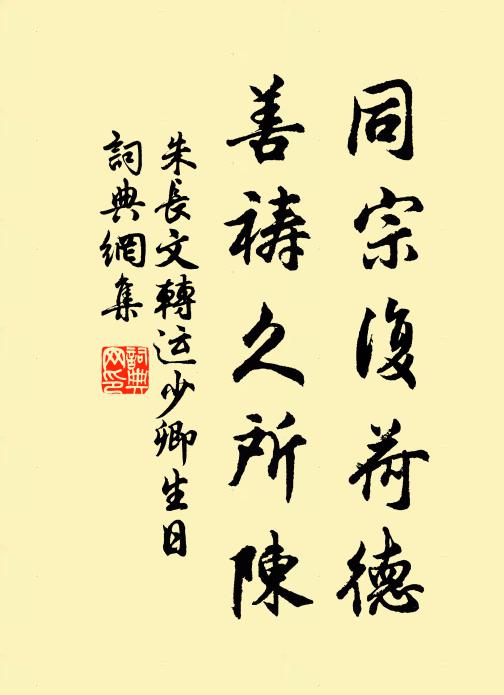 同宗復荷德
善禱久所陳
朱長文轉运少卿生日
詞典網集
詞典网印